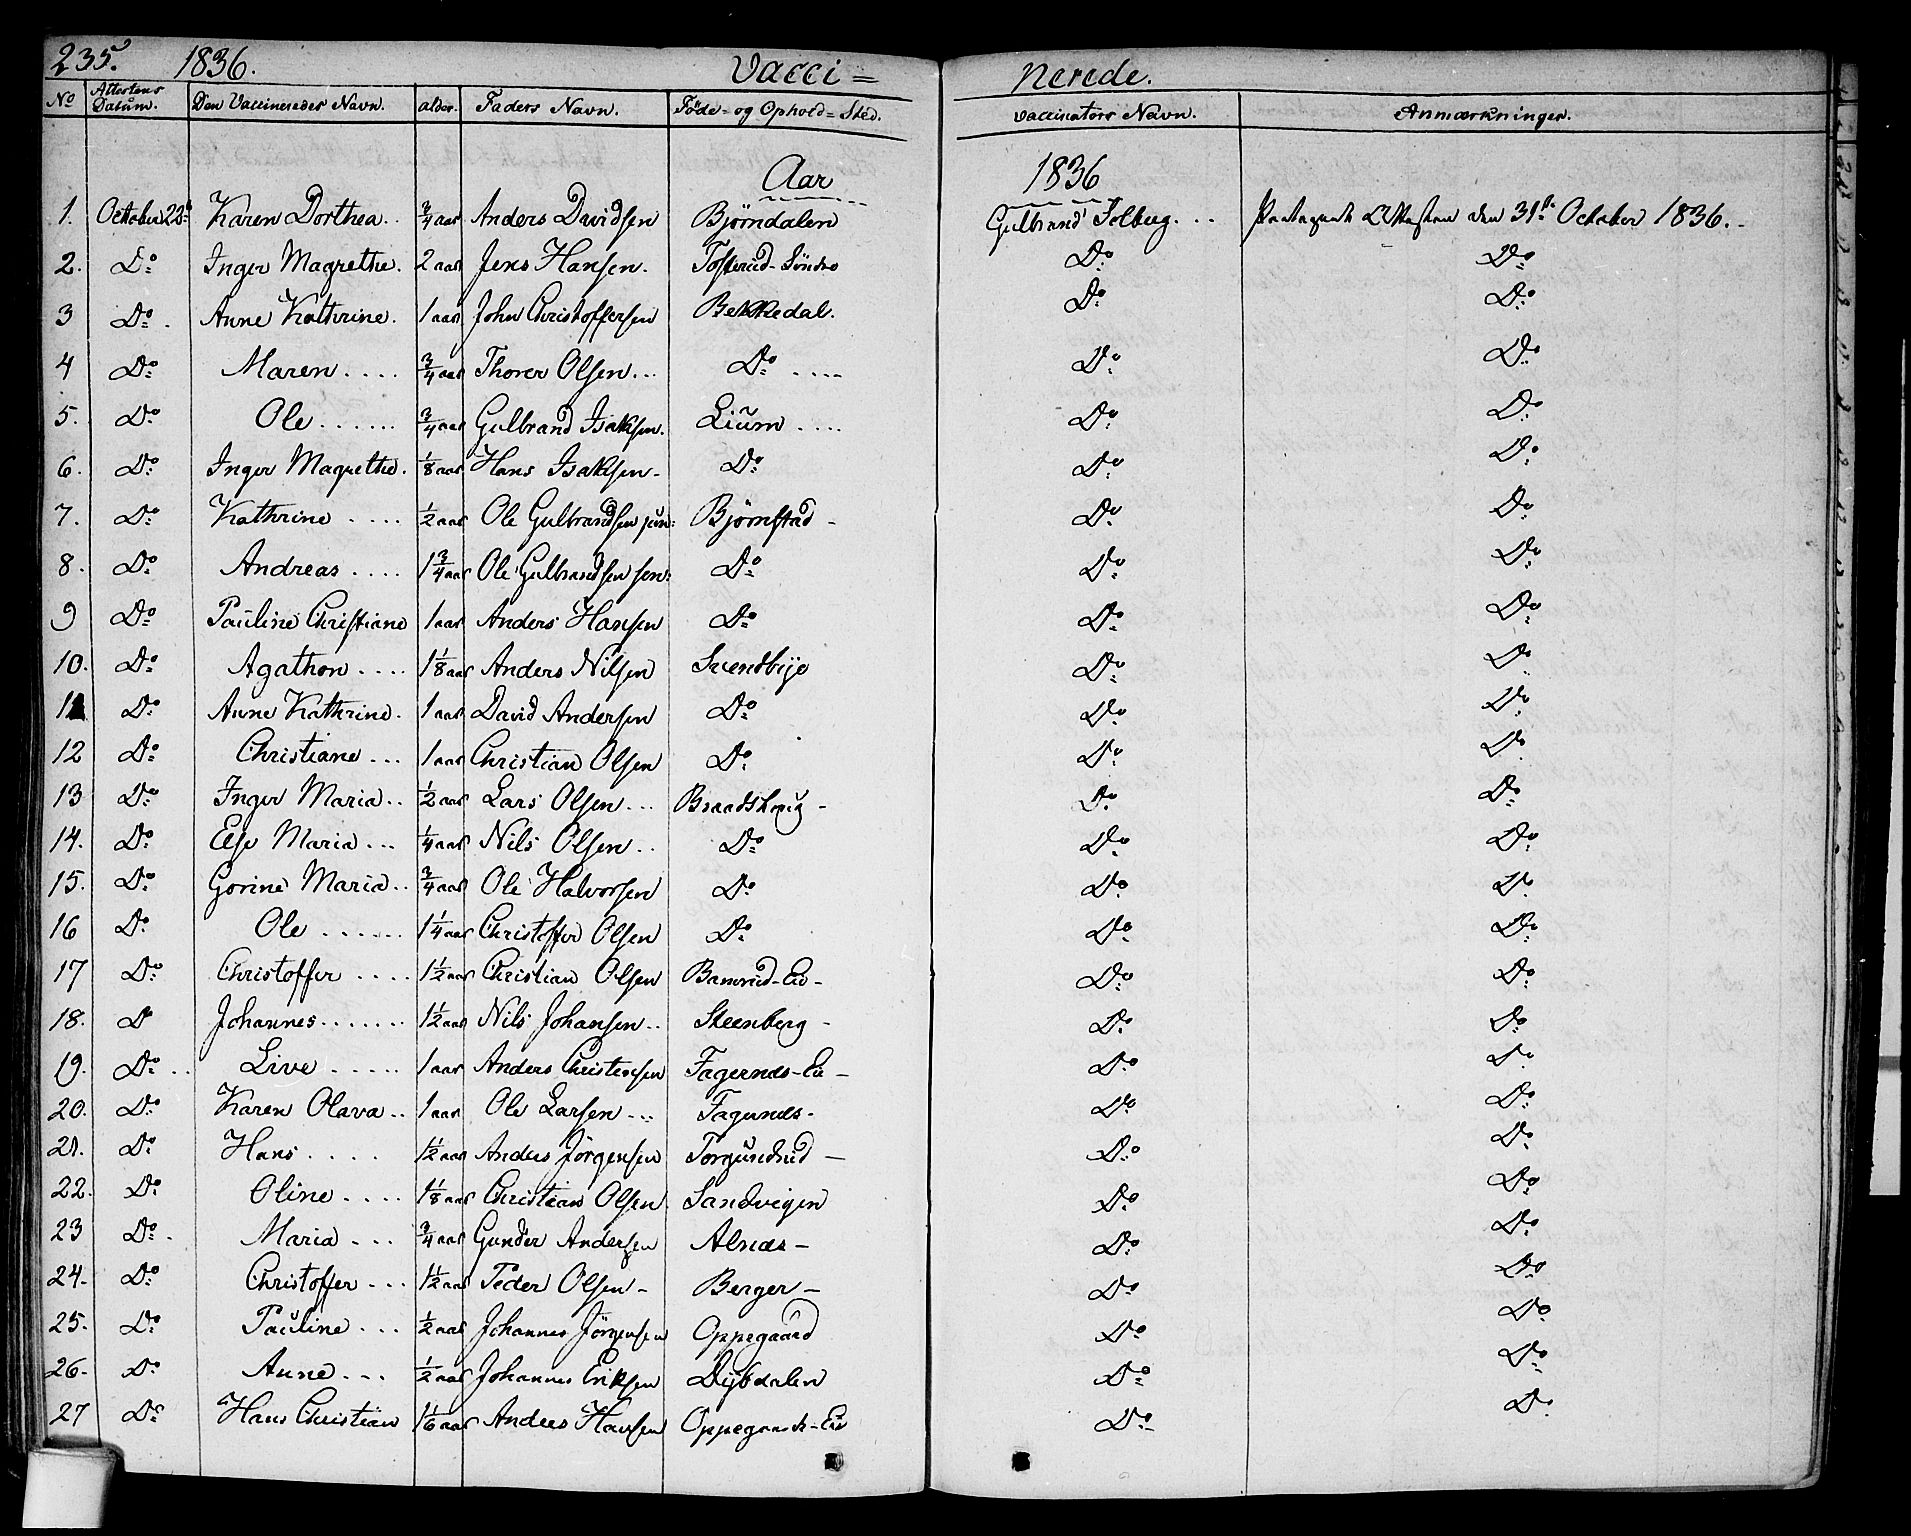 235. 1836. Vacci= nerede.
No Attestens Datum. Den Vaccineredes Navn. alder. Faders Navn. Föde- og Ophold=Sted. Vaccinators Navn. Anmærkninger.
Aar 1836
1. October 28 Karen Dorthea.. 3/4 aar Anders Davidsen Bjørndalen Gulbrand Solberg... Attesten den 31te October 1836.
2. Do Inger Magrethe. 2 aar Jens Hansen. Tosterud-Söndre Do Do
3 Do. Anne Kathrine. 1 aar John Christoffersen Bekkedal. Do Do
4 Do Maren.... 3/4 aar Thorer Olsen... Do.... Do Do
5. Do Ole...... 3/4 aar Gulbrand Isaksen. Lium.... Do Do
6. Do Inger Magrethe. 1/8 aar Hans Isaksen- Do Do Do
7. Do Kathrine.... 1/2 aar Ole Gulbrandsen jun: Bjørnstad- Do Do
8. Do Andreas.... 1 3/4 aar Ole Gulbrandsen sen: Do Do Do
9 Do Pauline Christiane 1 aar Anders Hansen Do Do Do
10. Do Agathon.... 1 1/8 aar Anders Nilsen Svendbye Do Do
11 Do Anne Kathrine. 1 aar David Andersen Do Do Do
12 Do Christiane... 1 aar Christian Olsen Do Do Do
13 Do Inger Maria.. 1/2 aar Lars Olsen... Braadshaug- Do Do
14. Do Else Maria... 1/4 aar Nils Olsen.. Do Do Do
15. Do Gorine Maria.. 3/4 aar Ole Halvorsen Do Do Do
16 Do Ole...... 1 1/4 aar Christoffer Olsen Do Do Do
17 Do Christoffer.... 1 1/2 aar Christian Olsen Do Do
18. Do Johannes....... 1 1/2 aar Nils Johansen.. Steenberg- Do Do
19. Do.. Live..... 1 aar Anders Christensen Fagernæs-Ei- Do Do
20. Do Karen Olava.. 1 aar Ole Larsen... Fagernæs- Do Do
21. Do Hans..... 1 1/2 aar Anders Jörgensen Torgundrud- Do Do
22. Do Oline.... 1 1/8 aar Christian Olsen Sandvigen Do Do
23 Do. Maria... 3/4 aar Gunder Andersen Alnæs- Do Do
24- Do Christoffer... 1 1/2 aar Peder Olsen- Berger- Do Do
25- Do Pauline... 1/2 aar Johannes Jörgensen Oppegaard Do Do
26- Do Anne... 1/2 aar Johannes Eriksen Dybdalen Do Do
27 Do Hans Christian 1 1/6 aar Anders Hansen Do Do